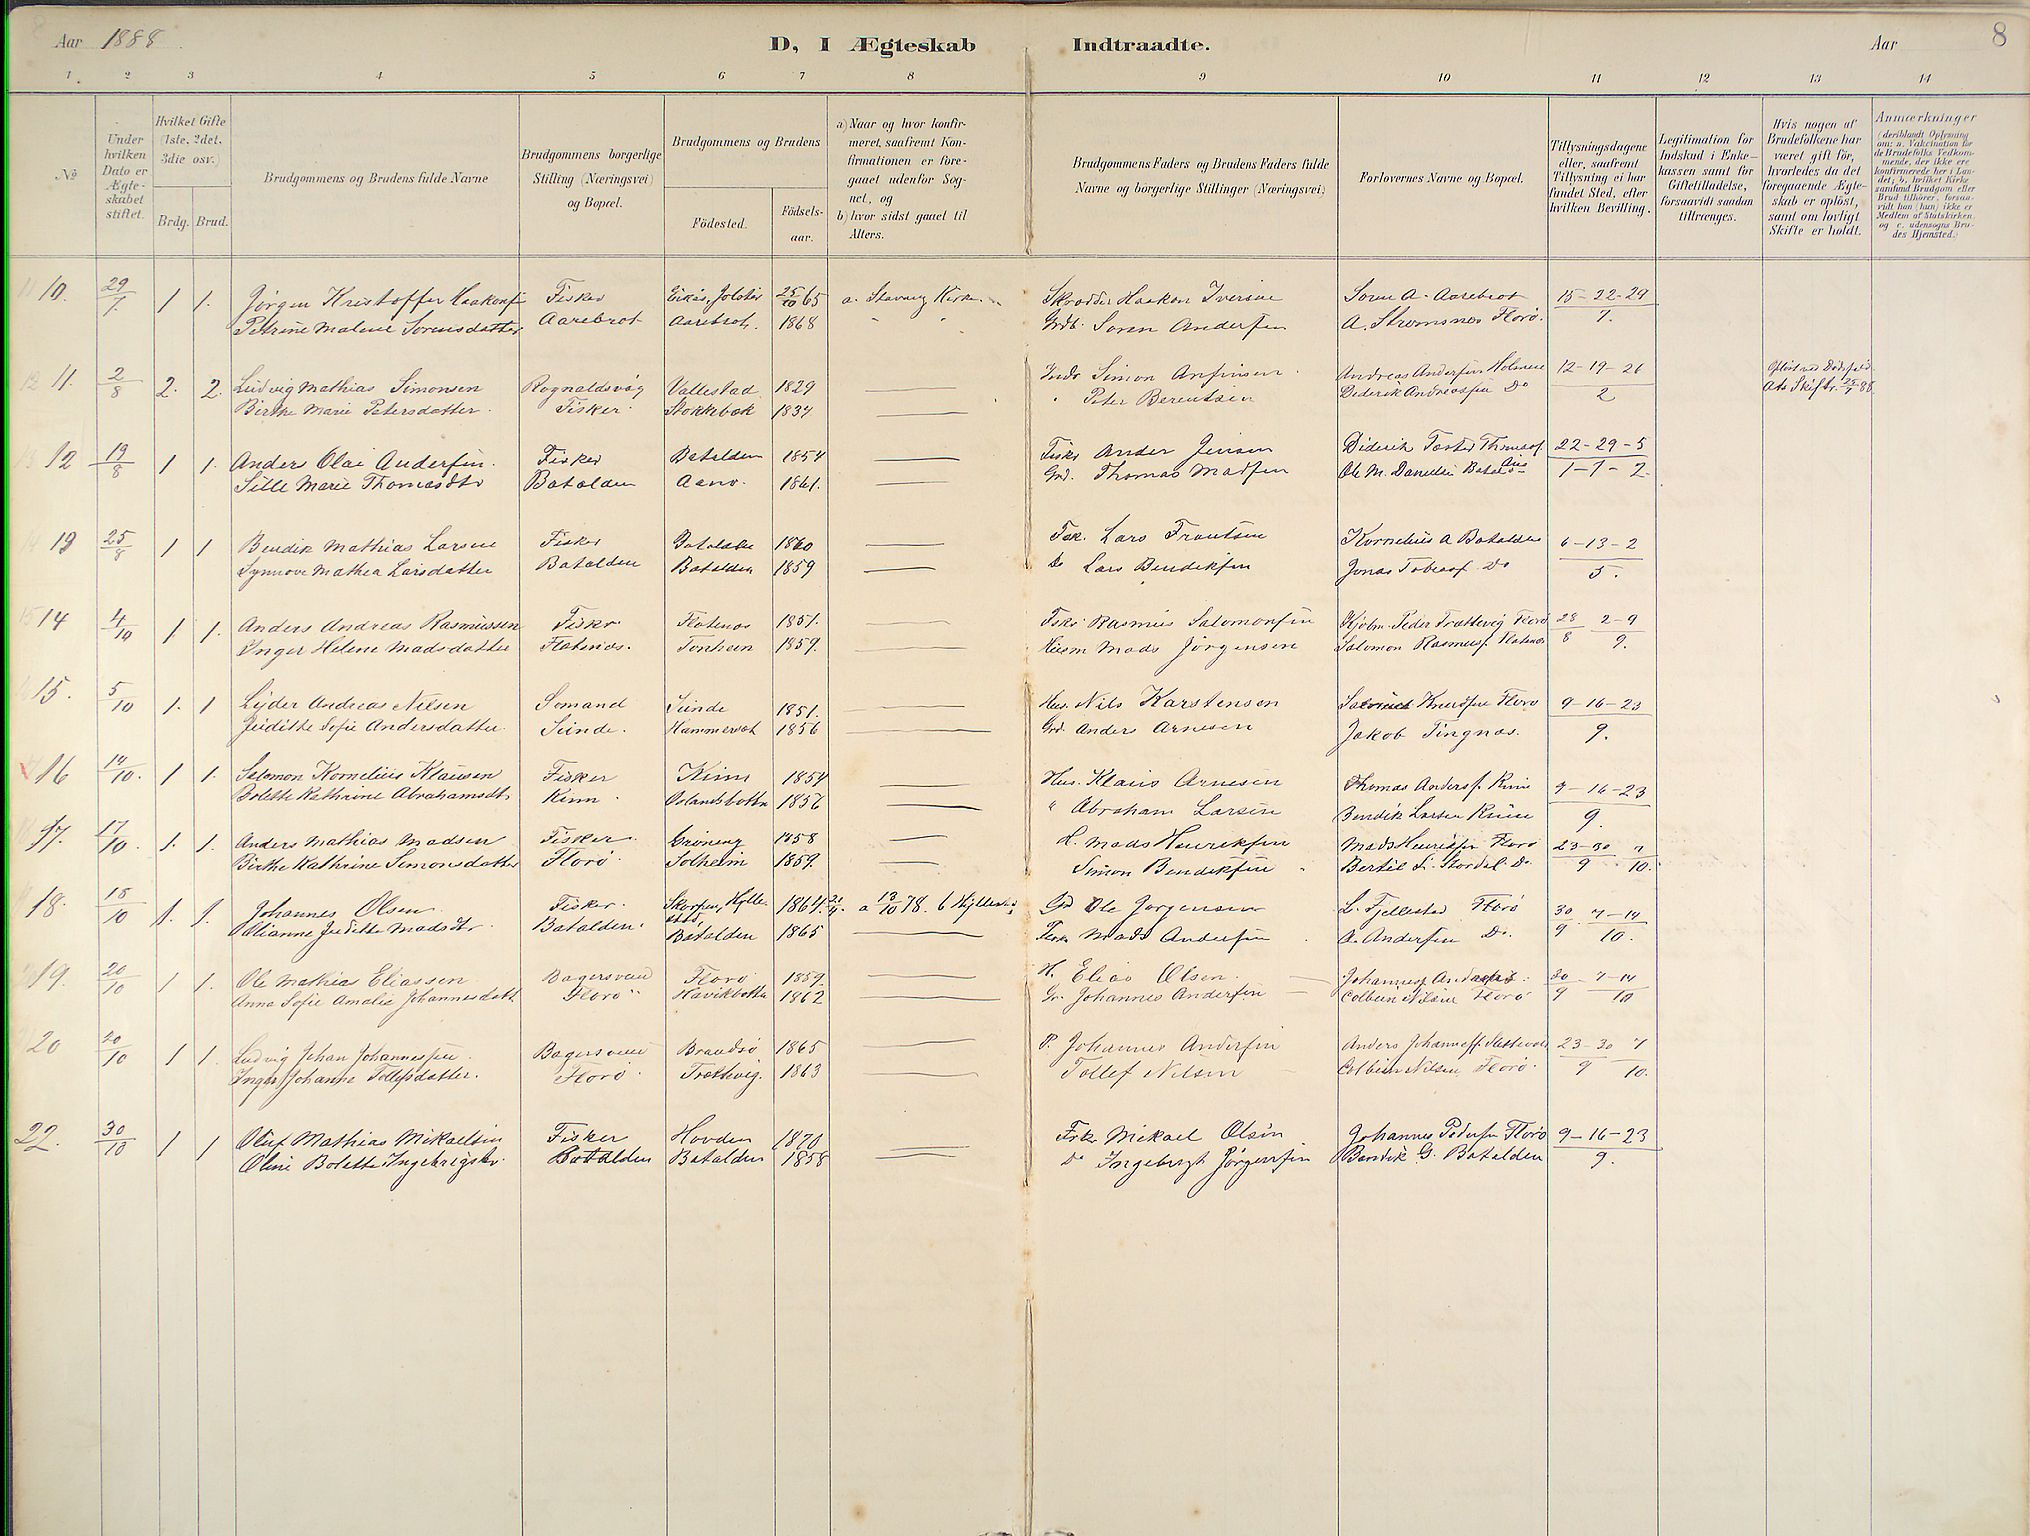 Aar 1888
D, I Ægteskab Indtraadte.
Aar
8
1 2 3 4 5 6 7 8 9 10 11 12 13 14
№
Under hvilken Dato er Ægteskabet stiftet.
Hvilket Gifte (1ste, 2det, 3die osv.)
Brdg. Brud.
Brudgommens og Brudens fulde Navne
Brudgommens borgerlige Stilling (Næringsvei) og Bopæl.
Brudgommens og Brudens
Fødested.
Fødselsaar.
a) Naar og hvor konfirmeret, saafremt Konfirmationen er foregaaet udenfor Sognet, og
b) hvor sidst gaaet til Alters.
Brudgommens Faders og Brudens Faders fulde Navne og borgerlige Stillinger (Næringsvei)
Forlovernes Navne og Bopæl.
Tillysningsdagene eller, saafremt Tillysning ei har fundet Sted, efter hvilken Bevilling.
Legitimation for Indskud i Enkekassen samt for Giftetilladelse, forsaavidt saadan tiltrænges.
Hvis nogen af Brudefolkene har været gift før, hvorledes da det foregaaende Ægteskab er opløst, samt om lovligt Skifte er holdt.
Anmærkninger
(deriblandt Oplysning om: a. Vakcination for de Brudefolks Vedkommende, der ikke ere konfirmerede her i Landet; b. hvilket Kirkesamfund Brudgom eller Brud tilhører, forsaavidt han (hun) ikke er Medlem af Statskirken, og c. udensogns Brudes Hjemsted.)
10. 29/7. 1 1. Jørgen Kristoffer Haakonsen Fisker Eikås, Jølster 25/10 65 a. Stavang Kirke Skrædder Haakon Iversen Søren A. Aarebrot 15-22-29
Petrine Malene Sørensdatter Aarebrot Aarebrot. 1868 " " Grdb. Søren Andersen A. Strømsnes Florø. 7.
11. 2/8 2. 2. Ludvig Mathias Simonsen Rognaldsvåg Vallestad 1829 Inds Simon Anfinsen Andreas Andersen 12-19-26
Birthe Marie Petersdatter Fisker Stokkbak 1834 " Peter Berentsen Diderik Andreassen Do 2 25/7 88
12 19/8 1 1. Anders Olai Andersen. Fisker Batalden 1854 Fisker Ander Jensen Diderik 22-29-5
Sille Marie Thomasdtr Batalden Aanø. 1861. Grd. Thomas Madsen Ole M. Danielsen 1-1-2.
13 25/8 1 1 Bendik Mathias Larsen Fisker Batalden 1860 Fsk. Lars Frantsen Kornelius A Batalden 6-13-2
Synnøve Mathea Larsdatter Batalden Batalden 1859 Do Lars Bendiksen Jonas Tobiass. Do 5.
14 4/10 1 1. Anders Andreas Rasmussen Fisker Flatenæs 1851. Fisk. Rasmus Salomonsen Kjøbm. Peder Frættevig Florø 28 2-9
Inger Helene Madsdatter Flatenæs. Tonheim 1859. Husm Mads Jørgensen Salomon Rasmuss. Flatenæs 8 9.
15. 5/10 1. 1 Lyder Andreas Nilsen Sømand Sunde 1851. Hus. Nils Karstensen Knudsen Florø 9-16-23
Juditte Sofie Andersdatter. Sunde. Hammerset 1856 Grd. Anders Arnesen Jakob Tingnæs. 9.
16 14/10. 1 1. Salomon Kornelius Klausen Fisker Kinn 1854 Hus. Klaus Arnesen Thomas Anderss. Kinn 9-16-23
Bolette Kathrine Abrahamsdtr Kinn. 1856 " Abraham Larsen Bendik Larsen Kinn 9.
17. 17/10. 1. 1. Anders Mathias Madsen Fisker Grøning 1858 H. Mads Henriksen Mads Henriksen Florø 23-30 7
Birthe Kathrine Simonsdatter Florø. Solheim 1859. Simon Bendiksen Bertil S. Stordal Do 9 10.
18. 18/10 1. 1. Johannes Olsen Fisker Skorpen, Hyllestad, 1864. a 13/10 78. Grd Ole Jørgensen L. Fjellestad Florø 30 7-14
Olianne Juditte Madsdtr. Batalden. Batalden 1865 Fisk. Mads Andersen A. Andersen Do. 9 10.
19. 20/10 1 1. Ole Mathias Eliassen Bagersvend Florø 1859. H. Elias Olsen. 30 7-14
Anna Sofie Amalie Johannesdatt Florø Havikbotten 1862 Gr. Johannes Andersen Colbein Nilsen Florø 9 10
20 20/10 1 1. Ludvig Johan Johannessen Bagersvend Brandsø 1865 P. Johannes Andersen Anders Johanness. 23-30 7
Inger Johanne Tollefsdatter. Florø Frættevig. 1863 Tollef Nilsen Colbein Nilsen Florø. 9 10.
22. 30/10 1 1 Oluf Mathias Mikaelsen Fisker Hovden 1870 Fisk. Mickael Olsen Johannes Pedersen Florø 9-16-23
Oline Bolette Ingebrigtsdtr. Batalden Batalden 1858 Do Ingebrigt Jørgensen Bendik G. Batalden 9.